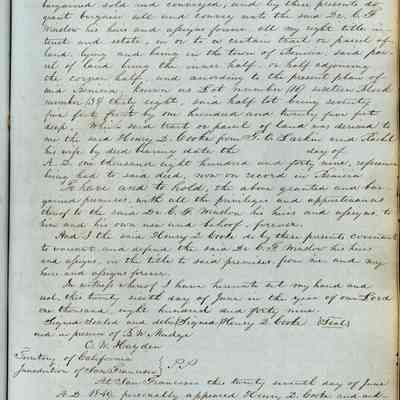 bargained sold and conveyed, and by these presents do
grant bargain sell and convey unto the said Dr. C. F.
Winslow his heirs and assigns forever all my right title in
terest and estate, in or to a certain tract or parcel of
land lying and being in the town of Benicia, said par
cel of land being the inner half or half adjoining
the corner half, and according to the present plan of
said Benicia, known as Lot number (16) sixteen Block
number 38 thirty eight, said half lot being seventy
five feet front by one hundred and twenty five feet
deep, Which said tract or parcel of land was deeded to
me the said Henry D. Cooke from T. O. Larkin and Rachel
his wife by deed bearing date the day of
A. D. one thousand eight hundred and forty nine, reference
being had to said deed, now on record in Benicia
To have and to hold, the above granted and bar-
gained premises, with all the privileges and appurtenances
thereof to the said Dr C. F. Winslow his heirs and assigns to
him and his own use and behoof forever.
And I the said Henry D. Cooke do by these presents covenant
to warrant and defend the said Dr C. F. Winslow his heirs
and assigns, in the title to said premises from me and my
heirs and assigns forever.
In witness whereof I have hereunto set my hand and
seal this twenty sixth day of June in the year of our Lord
one thousand eight hundred and forty nine.
Signed Sealed and deld (Signed) Henry D. Cooke (Seal)
and in presence of E. W. Mudge
C. W. Hayden
Territory of California
Jurisdiction of San Francisco } SS
At San Francisco this twenty seventh of June
A. D. 1849, personally appeared Henry D. Cooke and ack-